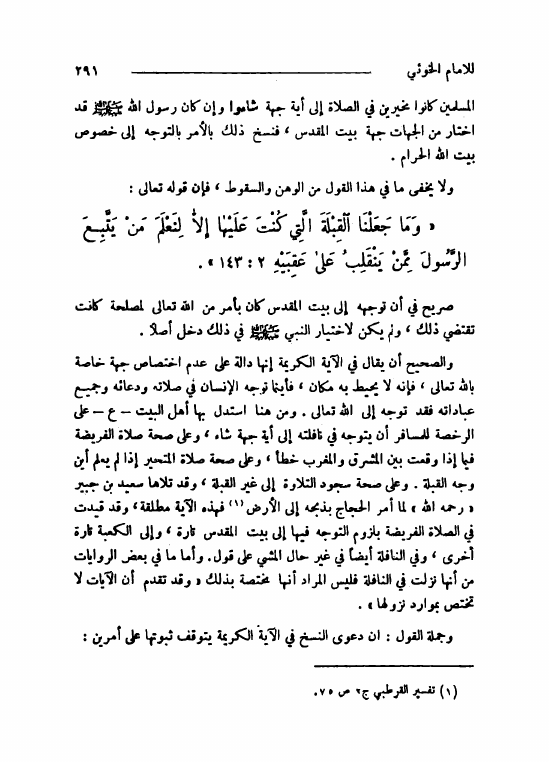 للامام الخوئي ٢٩١
المسلمين كانوا مخيرين في الصلاة إلى أية جهة شاءوا وإن كان رسول الله ﷺ قد
اختار من الجهات جهة بيت المقدس ، فنسخ ذلك بالأمر بالتوجه إلى خصوص
بيت الله الحرام .
ولا يخفى ما في هذا القول من الوهن والسقوط ، فإن قوله تعالى :
« وَمَا جَعَلْنَا الْقِبْلَةَ الَّتِي كُنْتَ عَلَيْهَا إِلاَّ لِنَعْلَمَ مَنْ يَتَّبِعُ
الرَّسُولَ مِمَّنْ يَنْقَلِبُ عَلَى عَقِبَيْهِ ٢ : ١٤٣ » .
صريح في أن توجهه إلى بيت المقدس كان بأمر من الله تعالى لمصلحة كانت
تقتضي ذلك ، ولم يكن لاختيار النبي ﷺ في ذلك دخل أصلاً .
والصحيح أن يقال في الآية الكريمة إنها دالة على عدم اختصاص جهة خاصة
بالله تعالى ، فإنه لا يحيط به مكان ، فأينما توجه الإنسان في صلاته ودعائه وجميع
عباداته فقد توجه إلى الله تعالى . ومن هنا استدل بها أهل البيت – ع – على
الرخصة للمسافر أن يتوجه في نافلته إلى أية جهة شاء ، وعلى صحة صلاة الفريضة
فيما إذا وقعت بين المشرق والمغرب خطأ ، وعلى صحة صلاة المتحير إذا لم يعلم أين
وجه القبلة . وعلى صحة سجود التلاوة إلى غير القبلة ، وقد تلاها سعيد بن جبير
« رحمه الله » لما أمر الحجاج بذبحه إلى الأرض (١) فهذه الآية مطلقة ، وقد قيدت
في الصلاة الفريضة بلزوم التوجه فيها إلى بيت المقدس تارة ، وإلى الكعبة تارة
أخرى ، وفي النافلة أيضاً في غير حال المشي على قول . وأما ما في بعض الروايات
من أنها نزلت في النافلة فليس المراد أنها مختصة بذلك « وقد تقدم أن الآيات لا
تختص بموارد نزولها » .
وجملة القول : ان دعوى النسخ في الآية الكريمة يتوقف ثبوتها على أمرين :
(١) تفسير القرطبي ج٢ ص ٧٥.